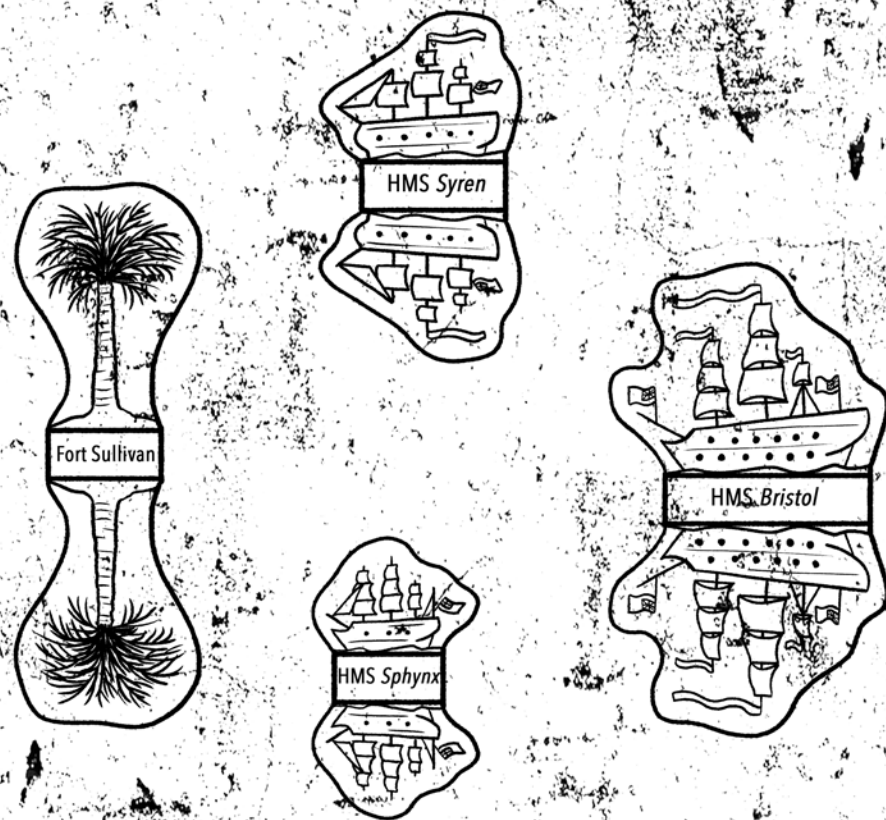 HMS Syren
Fort Sullivan
HMS Bristol
HMS Sphynx